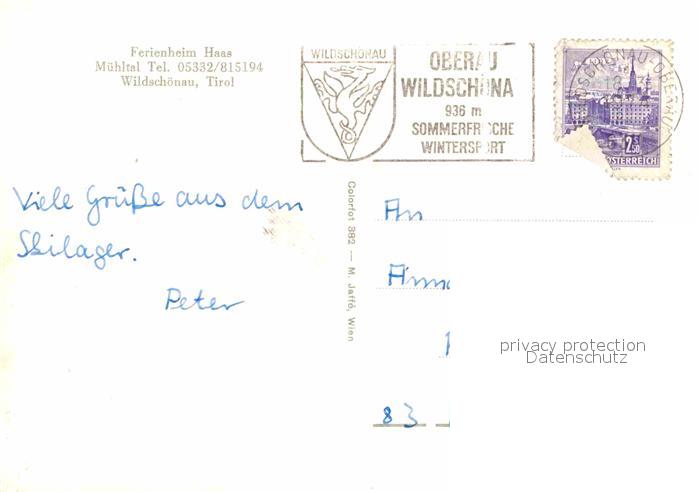 Ferienheim Haas
Mühltal Tel. 05332/815194
Wildschönau, Tirol
WILDSCHÖNAU
OBERAU
WILDSCHÖNA
936 m
SOMMERFRISCHE
WINTERSPORT
WILDSCHÖNAU-OBERAU
2.50
ÖSTERREICH
Viele Grüße aus dem
Skilager.
Peter
Colorfot 382 — M. Jaffé, Wien
An
83
privacy protection
Datenschutz